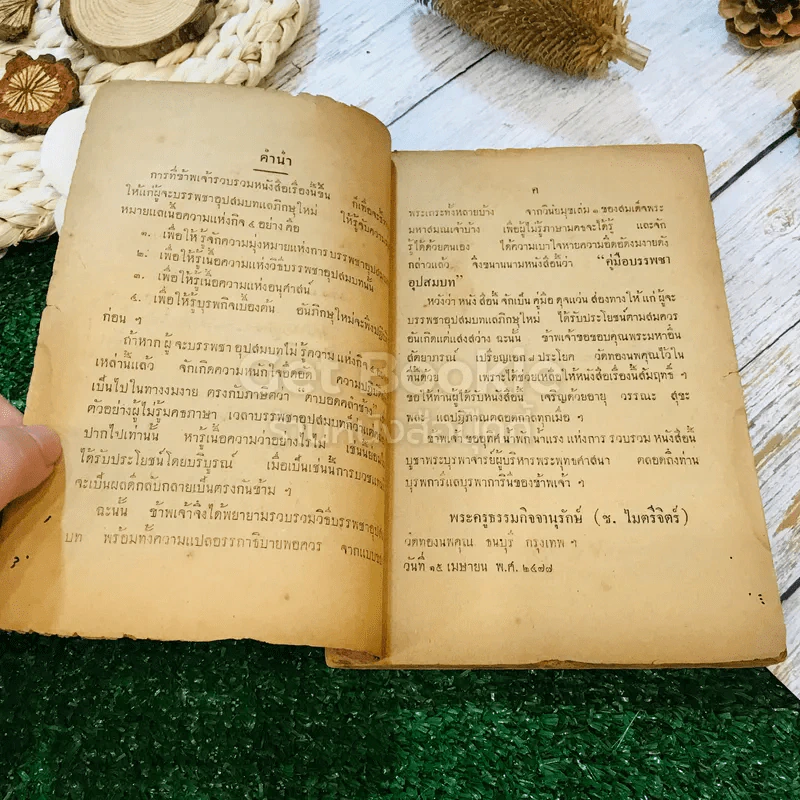 คำนำ
การที่ข้าพเจ้ารวบรวมหนังสือเรื่องนี้ขึ้น ก็เพื่อจะ
ให้แก่ผู้จะบรรพชาอุปสมบทแลภิกษุใหม่ ให้รู้จักความ
หมายแลเนื้อความแห่งกิจ ๔ อย่าง คือ
๑. เพื่อให้รู้จักความมุ่งหมายแห่งการบรรพชาอุปสมบท
๒. เพื่อให้รู้เนื้อความแห่งวิธีบรรพชาอุปสมบทนั้น
๓. เพื่อให้รู้เนื้อความแห่งอนุศาสน์
๔. เพื่อให้รู้บุรพกิจเบื้องต้น อันภิกษุใหม่จะพึงปฏิบัติ
ก่อน ๆ
ถ้าหาก ผู้ จะบรรพชา อุปสมบทไม่ รู้ความ แห่งกิจ ๔
เหล่านี้แล้ว จักเกิดความหนักใจอึดอัด ความปฏิบัติ
เป็นไปในทางมงาย ตรงกับภาษิตว่า "ตาบอดคลำช้าง"
ตัวอย่างผู้ไม่รู้มคธภาษา เวลาบรรพชาอุปสมบทก็ว่าแต่
ปากไปเท่านั้น หารู้เนื้อความว่าอย่างไรไม่ เช่นนี้ย่อม
ได้รับประโยชน์โดยบริบูรณ์ เมื่อเป็นเช่นนี้การบวชแทน
จะเป็นผลดีกลับกลายเป็นตรงกันข้าม ๆ
ฉะนั้น ข้าพเจ้าจึงได้พยายามรวบรวมวิธีบรรพชาอุปสม
บท พร้อมทั้งความแปลอรรถาธิบายพอควร จากแบบ
ค
พระเถระทั้งหลายบ้าง จากวินัยมุขเล่ม ๑ ของสมเด็จพระ
มหาสมณเจ้าบ้าง เพื่อผู้ไม่รู้ภาษามคธจะได้รู้ และจัก
รู้ได้ด้วยตนเอง ได้ความเบาใจหายความอึดอัดงมงายดัง
กล่าวแล้ว จึงขนานนามหนังสือนี้ว่า "คู่มือบรรพชา
อุปสมบท"
หวังว่า หนังสือนี้ จักเป็น คู่มือ ดุจแว่น ส่องทางให้ แก่ ผู้จะ
บรรพชาอุปสมบทแลภิกษุใหม่ ได้รับประโยชน์ตามสมควร
อันเกิดแต่แสงสว่าง ฉะนั้น ข้าพเจ้าขอขอบคุณพระมหาอิ่น
สัตยาภรณ์ เปรียญเอก ๗ ประโยค วัดทองนพคุณไว้ใน
ที่นี้ด้วย เพราะได้ช่วยเหลือให้หนังสือเรื่องนี้สัมฤทธิ์ ๆ
ขอให้ท่านผู้ได้รับหนังสือนี้ เจริญด้วยอายุ วรรณะ สุขะ
พละ แลปฏิภาณตลอดกาลทุกเมื่อ ๆ
ข้าพเจ้า ขออุทิศ น้ำพักน้ำแรง แห่งการ รวบรวม หนังสือนี้
บูชาพระบุรพาจารย์ผู้บริหารพระพุทธศาสนา ตลอดถึงท่าน
บุรพการีแลบุรพาการินีของข้าพเจ้า ๆ
พระครูธรรมกิจจานุรักษ์ (ช. ไมตรีจิตร์)
วัดทองนพคุณ ธนบุรี กรุงเทพ ๆ
วันที่ ๑๕ เมษายน พ.ศ. ๒๔๗๗